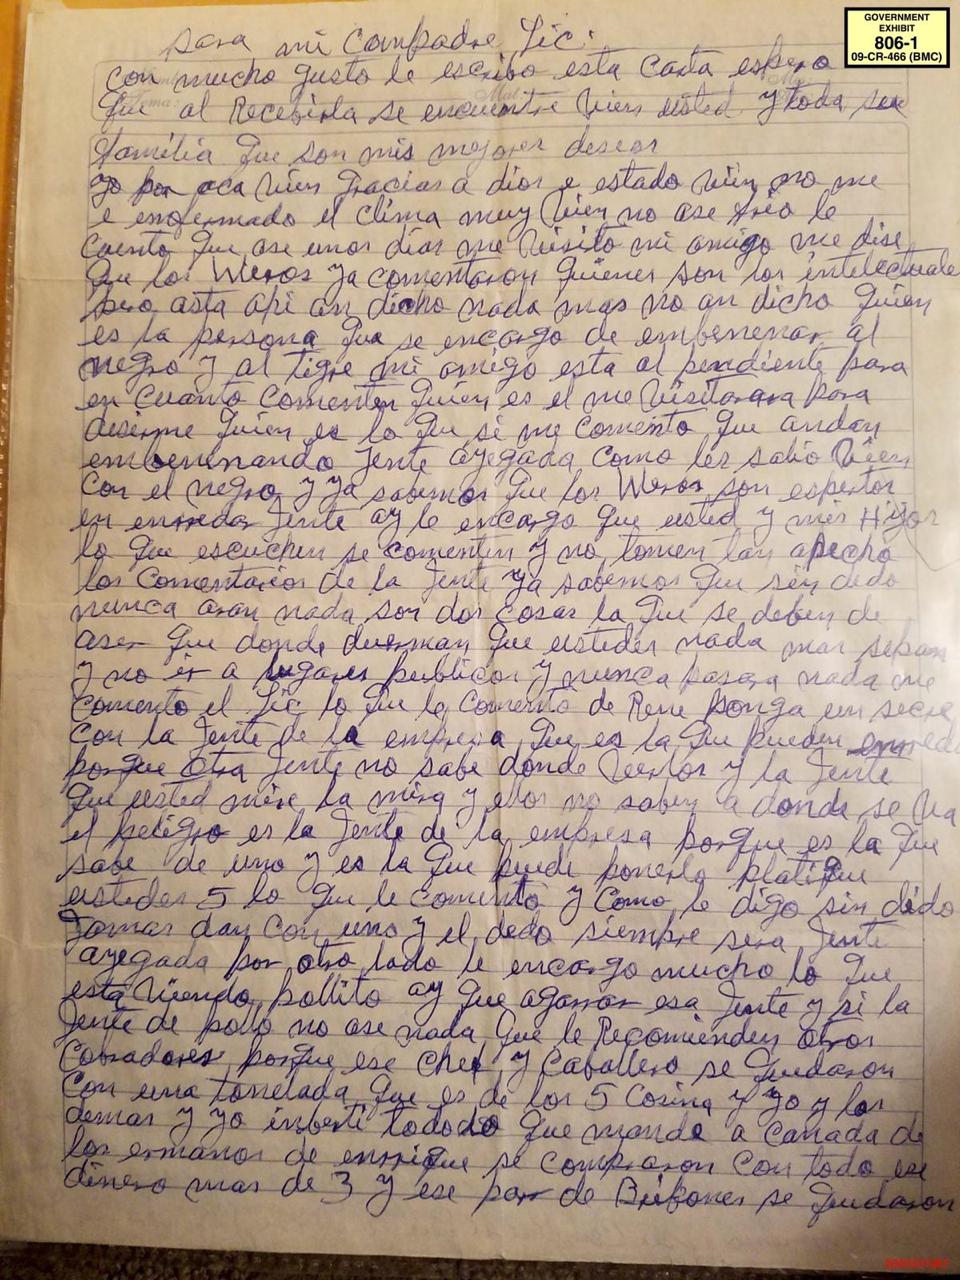 GOVERNMENT
EXHIBIT
806-1
09-CR-466 (BMC)
para mi Compadre Lic:
con mucho gusto le escribo esta carta espero
que al Recebirla se encuentre bien usted y toda su
familia que son mis mejores deseos
yo por aca bien gracias a dios e estado bien no me
e enfermado el clima muy bien no ase frio le
cuento que ase unos dias me visito mi amigo me dise
que los Weros ya comentaron quienes son los intelectuale
pero asta api an dicho nada mas no an dicho quien
es la persona que se encargo de embenenar al
negro y al tigre mi amigo esta al pendiente para
en cuanto comenten quien es el me visitarara para
desirme quien es lo que si me comento que andan
embenenando Jente ayegada como les salio bien
con el negro y ya sabemos que los Weros son espertos
en enrredar Jente ay le encargo que usted y mis Hijos
lo que escuchen se comenten y no tomen tan apecho
los comentarios de la Jente ya sabemos que sin dedo
nunca aran nada son dos cosas la que se deben de
aser que donde duerman que ustedes nada mas sepan
y no ir a lugares publicos y nunca pasara nada me
comento el Lic lo que le comento de Rene ponga un secre
con la Jente de la empresa que es la que pueden enrreda
porque otra Jente no sabe donde verlos y la Jente
que usted mire la mira y ellos no saben a donde se va
el peligro es la Jente de la empresa porque es la que
sabe de uno y es la que puede ponerlo platique
ustedes 5 lo que le comento y como le digo sin dedo
Jamas dan con uno y el dedo siempre sera Jente
ayegada por otro lado le encargo mucho lo que
esta viendo pollito ay que agarrar esa Jente y si la
Jente de pollo no ase nada que le Recomienden otros
Cobradores porque ese chep y Caballero se quedaron
con una tonelada que es de los 5 Cosina y yo y los
demas y yo inberti tododo que mande a Canada de
los ermanos de enrrique se compraron con todo ese
dinero mas de 3 y ese par de Bribones se quedaron